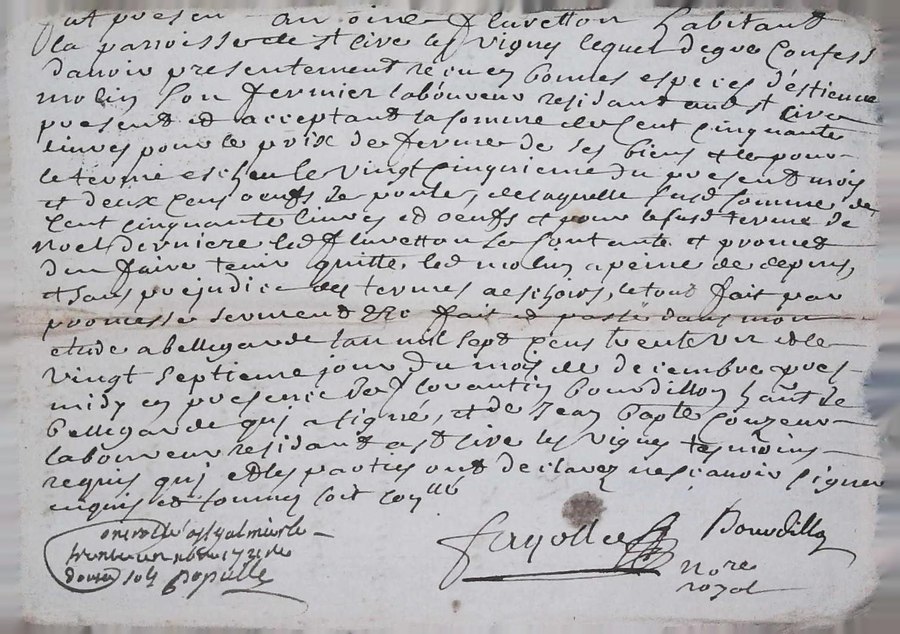 fut présent an oine fluvetton habitant
la parroisse de st cire les vignes lequel de gré confess
davoir presentement reçu en bonnes especes d'estienne
molin son fermier laboureur residant aud st cire
present et acceptant la somme de cent cinquante
livres pour le prix de ferme de ses biens et le pour
le terme escheu le vingt cinquieme du present mois
et deux cens oeufs de poule, de laquelle susd somme de
cent cinquante livres et oeufs et pour le susd terme de
noel derniere led fluvetton se contante et promet
den faire tenir quitte led molin a peine de depens,
et sans prejudice des termes a eschoirs, le tout fait par
promesse serment &c fait et passé dans mon
etude a bellegarde lan mil sept cens trente un et le
vingt septieme jour du mois de decembre apres
midy en presence de florantin bourdillon habt de
bellegarde qui a signé, et de Jean bapte couzeur
laboureur residant a st cire les vignes tesmoins
requis qui et les parties ont declarez ne sçavoir signer
enquis et sommés soit
Fayolle Bourdillon
nore
royal